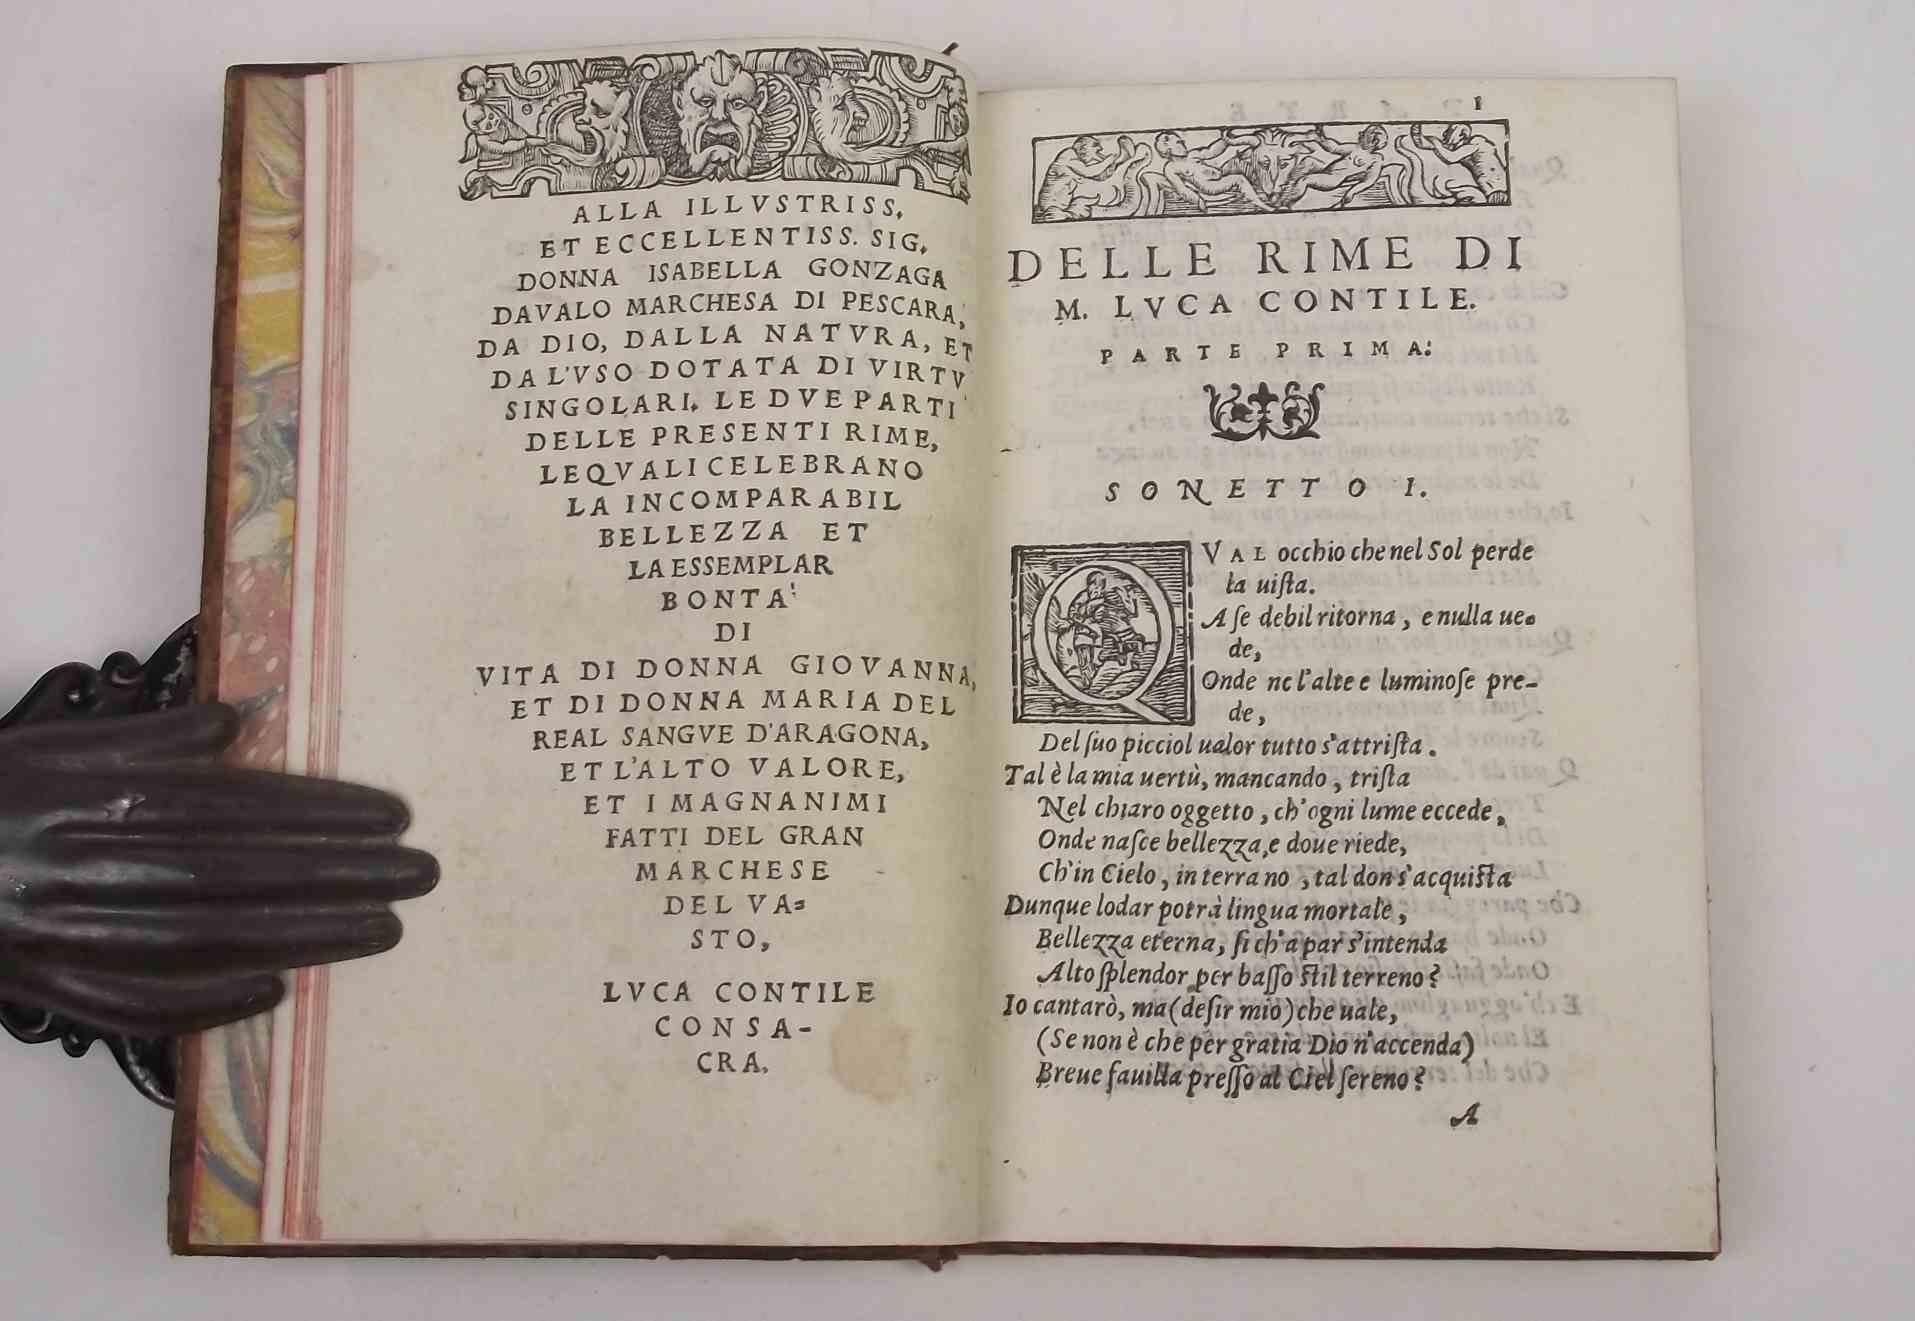 ALLA ILLVSTRISS.
ET ECCELLENTISS. SIG.
DONNA ISABELLA GONZAGA
DAVALO MARCHESA DI PESCARA,
DA DIO, DALLA NATVRA, ET
DA L'VSO DOTATA DI VIRTV
SINGOLARI. LE DVE PARTI
DELLE PRESENTI RIME,
LEQVALI CELEBRANO
LA INCOMPARABIL
BELLEZZA ET
LA ESSEMPLAR
BONTA'
DI
VITA DI DONNA GIOVANNA,
ET DI DONNA MARIA DEL
REAL SANGVE D'ARAGONA,
ET L'ALTO VALORE,
ET I MAGNANIMI
FATTI DEL GRAN
MARCHESE
DEL VA=
STO,
LVCA CONTILE
CONSA-
CRA.
1
DELLE RIME DI
M. LVCA CONTILE.
PARTE PRIMA.
SONETTO I.
QVAL occhio che nel Sol perde
la uiſta.
A ſe debil ritorna, e nulla ue-
de,
Onde ne l'alte e luminoſe pre-
de,
Del ſuo picciol ualor tutto s'attriſta.
Tal è la mia uertù, mancando, triſta
Nel chiaro oggetto, ch'ogni lume eccede,
Onde naſce bellezza, e doue riede,
Ch'in Cielo, in terra no, tal don s'acquiſta
Dunque lodar potrà lingua mortale,
Bellezza eterna, ſi ch'a par s'intenda
Alto ſplendor per baſſo ſtil terreno?
Io cantarò, ma (deſir mio) che uale,
(Se non è che per gratia Dio n'accenda)
Breue fauilla preſſo al Ciel ſereno?
A